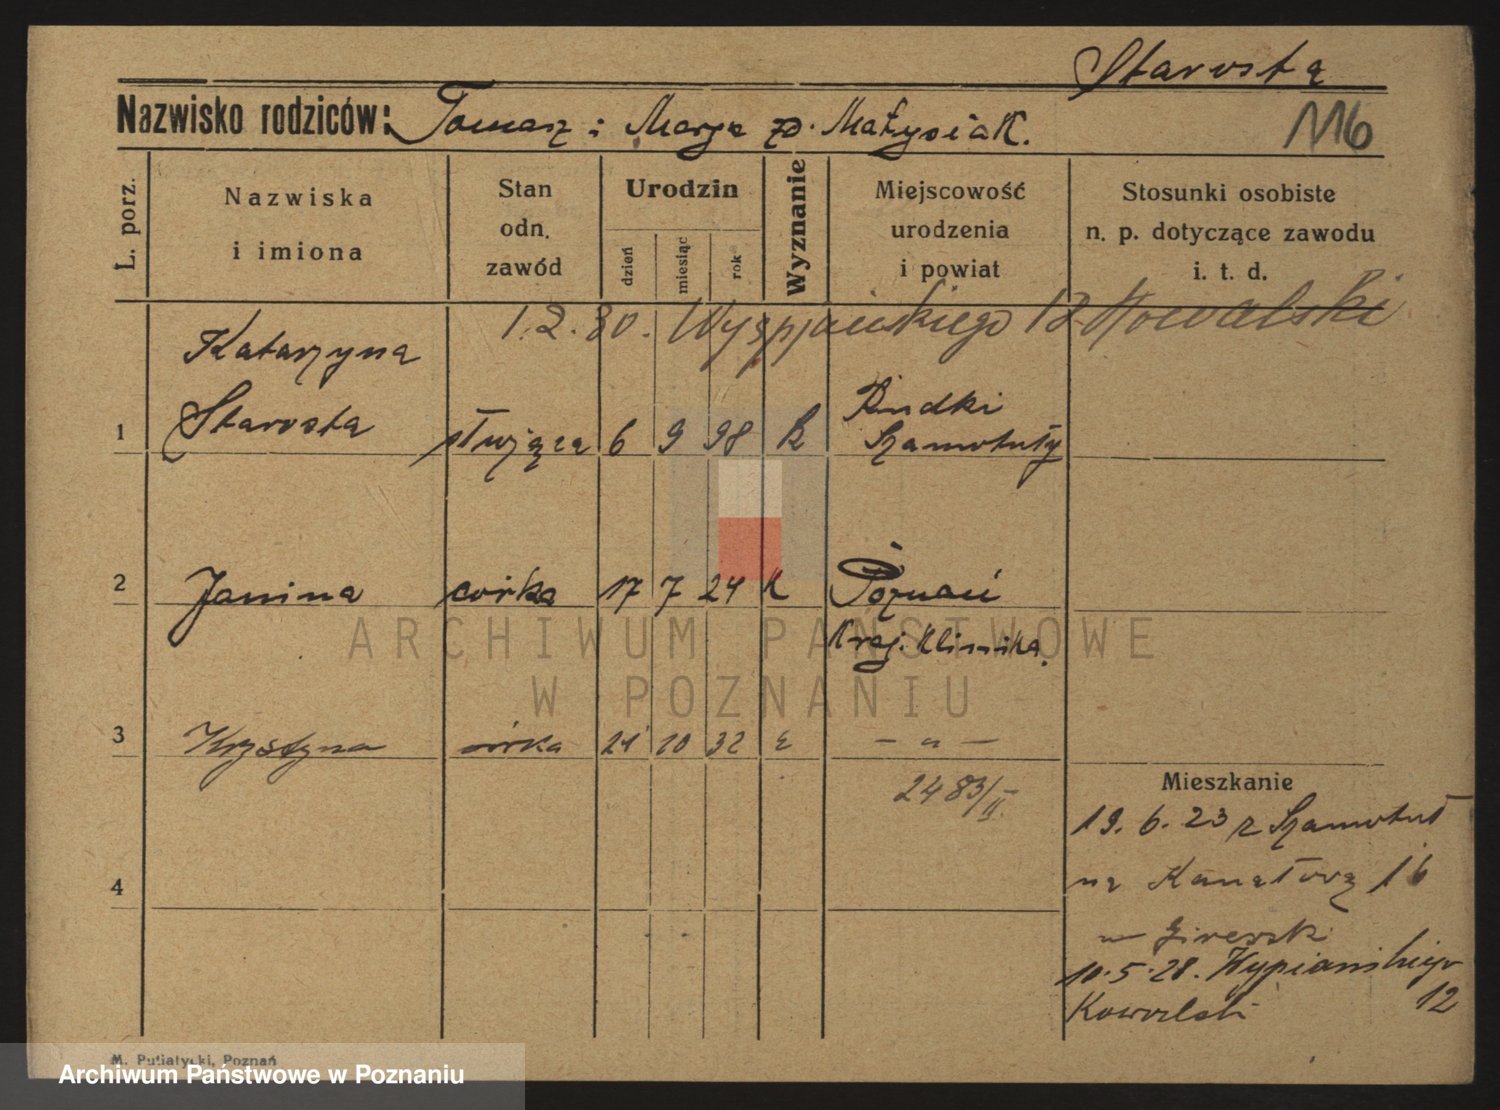 Starosta
Nazwisko rodziców: Tomasz i Marja zd. Matysiak.
116
L. porz.
Nazwiska
i imiona
Stan
odn.
zawód
Urodzin
dzień
miesiąc
rok
Wyznanie
Miejscowość
urodzenia
i powiat
Stosunki osobiste
n. p. dotyczące zawodu
i. t. d.
1.2.30. Wyspiańskiego 12 Kowalski
Katarzyna
1 Starosta służąca 6 9 98 k Rudki
Szamotuły
2 Janina córka 17 7 24 k Poznań
Kraj. Klinika.
3 Krystyna córka 21 10 32 — " —
2483/II.
4
Mieszkanie
19.6.23 z Szamotuł
na Kanałową 16
10.5.28. Wypiańskiego
12
Kowalski
M. Putiatycki, Poznań
ARCHIWUM PAŃSTWOWE
W POZNANIU
Archiwum Państwowe w Poznaniu